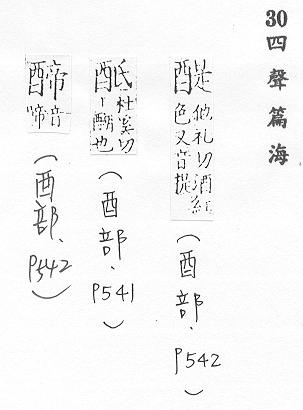 30四聲篇海
醍他礼切酒紅
色又音提
(酉部、P542)
䣌杜奚切
丨醐也
(酉部、P541)
音
啼
(酉部、P542)